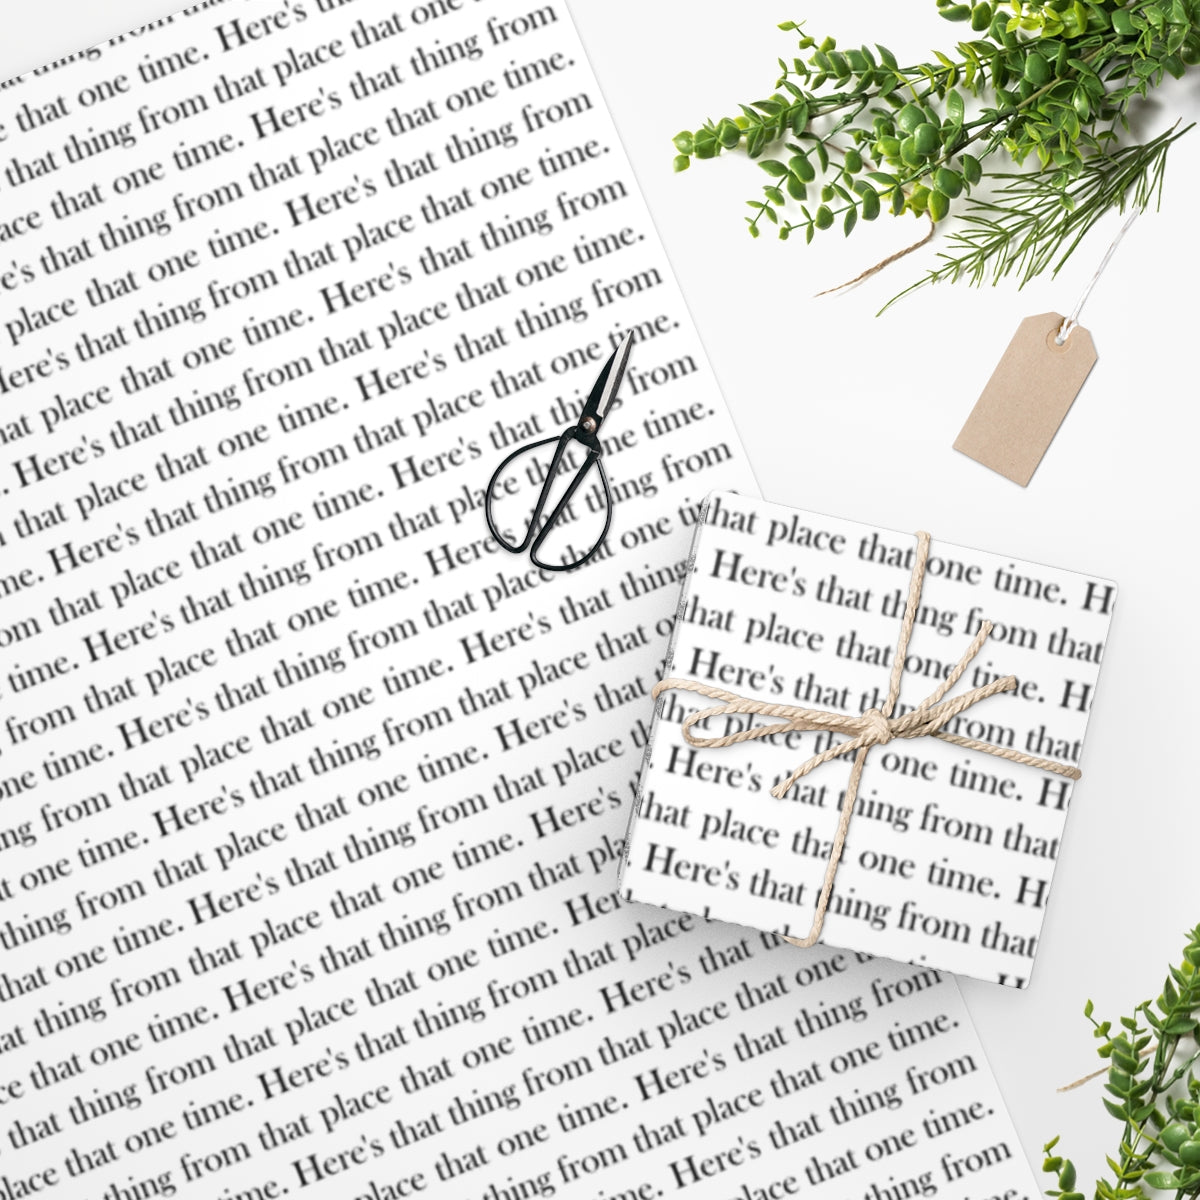 thing from that
that one time. Here's
that thing from that place that one
place that one time. Here's that thing from
Here's that thing from that place that one time.
place that one time. Here's that thing from
Here's that thing from that place that one time.
place that one time. Here's that thing from
Here's that thing from that place that one time.
that place that one time. Here's that thing from
Here's that thing from that place that one time.
that place that one time. Here's that thing from
time. Here's that thing from that place that one time.
from that place that one time. Here's that thing from
one time. Here's that thing from that place that one
from that place that one time. Here's that thing
one time. Here's that thing from that place that
thing from that place that one time. Here's that
that one time. Here's that thing from that place
that thing from that place that one time. Here's
that one time. Here's that thing from that
that thing from that place that one time.
place that one time. Here's that thing from that place
thing from that place that one time. Here's that
time. Here's that thing from that place that one
place that one time. Here's that thing from
Here's that thing from that place that one time.
place that one time. Here's that thing from
thing from that place that one time.
time. Here's that thing from
place that one time.
that place that one time.
Here's that thing from that
that place that one time.
Here's that thing from that
that place that one time.
Here's that thing from that
that place that one time.
Here's that thing from that